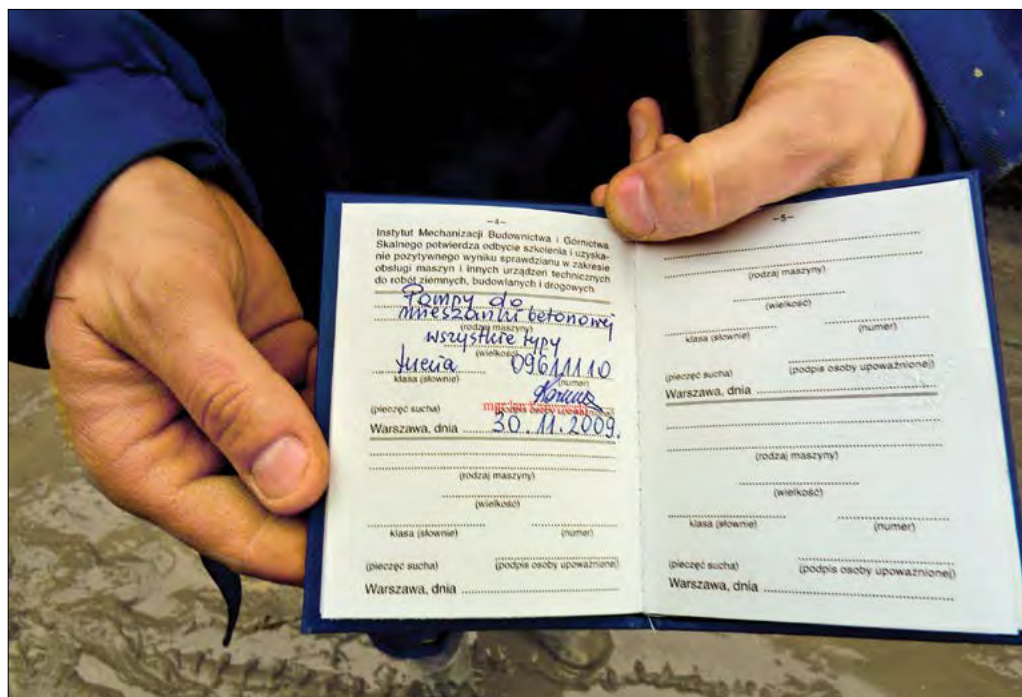 –4–
Instytut Mechanizacji Budownictwa i Górnictwa
Skalnego potwierdza odbycie szkolenia i uzyska-
nie pozytywnego wyniku sprawdzianu w zakresie
obsługi maszyn i innych urządzeń technicznych
do robót ziemnych, budowlanych i drogowych
Pompy do
mieszanki betonowej
(rodzaj maszyny)
wszystkie typy
(wielkość)
klasa (słownie)
(numer)
(pieczęć sucha) (podpis osoby upoważnionej)
Warszawa, dnia 30.11.2009.
(rodzaj maszyny)
(wielkość)
klasa (słownie) (numer)
(pieczęć sucha) (podpis osoby upoważnionej)
Warszawa, dnia
–5–
(rodzaj maszyny)
(wielkość)
klasa (słownie) (numer)
(pieczęć sucha) (podpis osoby upoważnionej)
Warszawa, dnia
(rodzaj maszyny)
(wielkość)
klasa (słownie) (numer)
(pieczęć sucha) (podpis osoby upoważnionej)
Warszawa, dnia